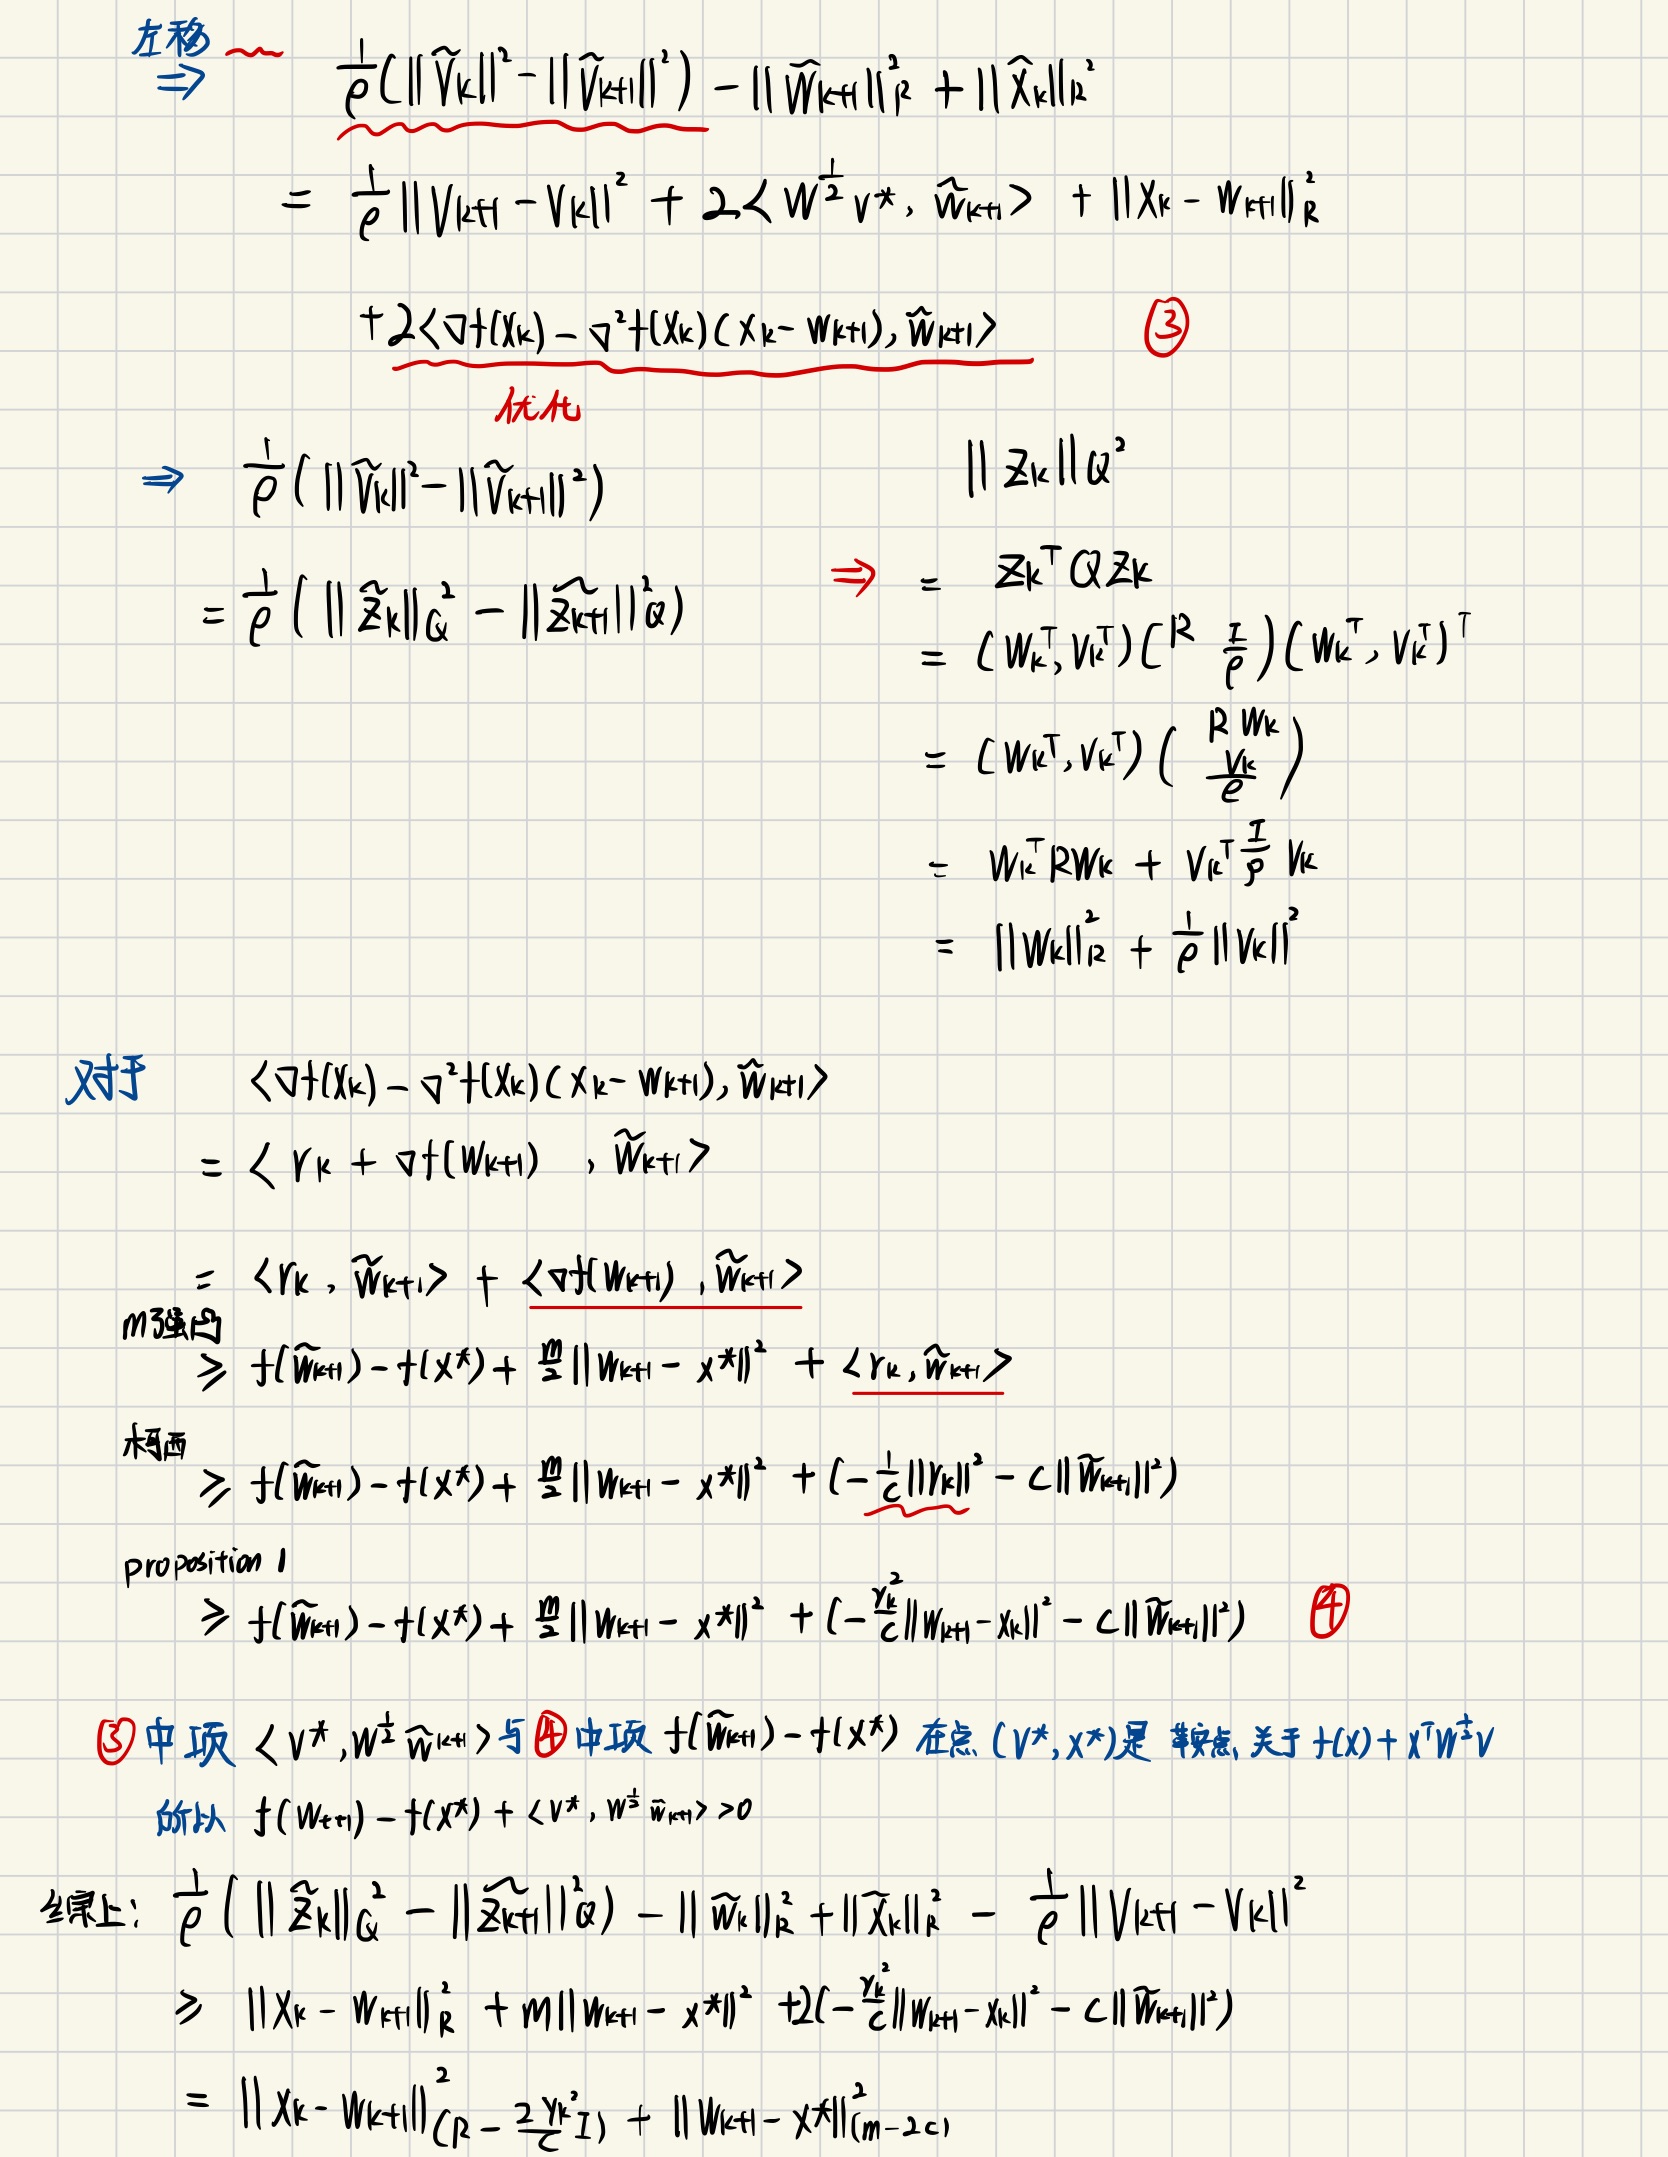 左移
⇒ 1/ρ(||Ṽk||² - ||Ṽk+1||²) - ||W̃k+1||²R + ||X̃k||R²
= 1/ρ||Vk+1 - Vk||² + 2<W^{1/2} v*, w̃k+1> + ||Xk - Wk+1||²R
+2<∇f(Xk) - ∇²f(Xk)(Xk - Wk+1), w̃k+1> ③
优化
⇒ 1/ρ(||Ṽk||² - ||Ṽk+1||²)
= 1/ρ(||z̃k||²Q - ||z̃k+1||²Q)
||zk||Q²
⇒ = zk^T Q zk
= (Wk^T, Vk^T)(R I/ρ)(Wk^T, Vk^T)^T
= (Wk^T, Vk^T)(R Wk Vk/ρ)
= Wk^T R Wk + Vk^T I/ρ Vk
= ||Wk||²R + 1/ρ||Vk||²
对于 <∇f(Xk) - ∇²f(Xk)(Xk - Wk+1), w̃k+1>
= <rk + ∇f(Wk+1) , w̃k+1>
= <rk, w̃k+1> + <∇f(Wk+1), w̃k+1>
m强凸
≥ f(w̃k+1) - f(x*) + m/2||Wk+1 - x*||² + <rk, w̃k+1>
柯西
≥ f(w̃k+1) - f(x*) + m/2||Wk+1 - x*||² + (-1/c||rk||² - c||w̃k+1||²)
proposition 1
≥ f(w̃k+1) - f(x*) + m/2||Wk+1 - x*||² + (-γk²/c||Wk+1 - Xk||² - c||w̃k+1||²) ④
③中项 <v*, W^{1/2} w̃k+1> 与④中项 f(w̃k+1) - f(x*) 在点 (v*, x*)是 鞍点 关于 f(x) + x^T W^{1/2} v
所以 f(Wt+1) - f(x*) + <v*, W^{1/2} w̃k+1> >0
综上: 1/ρ(||z̃k||²Q - ||z̃k+1||²Q) - ||w̃k||²R + ||X̃k||²R - 1/ρ||Vk+1 - Vk||²
≥ ||Xk - Wk+1||²R + m||Wk+1 - x*||² +2(-γk²/c||Wk+1 - Xk||² - c||w̃k+1||²)
= ||Xk - Wk+1||²(R - 2γk²/c I) + ||Wk+1 - x*||²(m-2c)